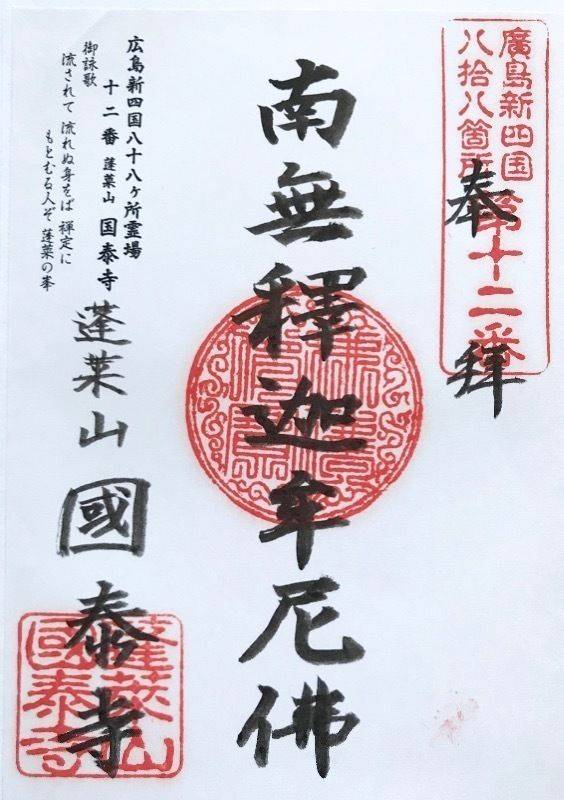 廣島新四国
八拾八箇所
第十二番
奉拜
南無釋迦牟尼佛
広島新四国八十八ヶ所霊場
十二番 蓬莱山 国泰寺
御詠歌
流されて 流れぬ身をば 禅定に
もとむる人ぞ 蓬莱の峯
蓬莱山 國泰寺
蓬莱山
國泰寺